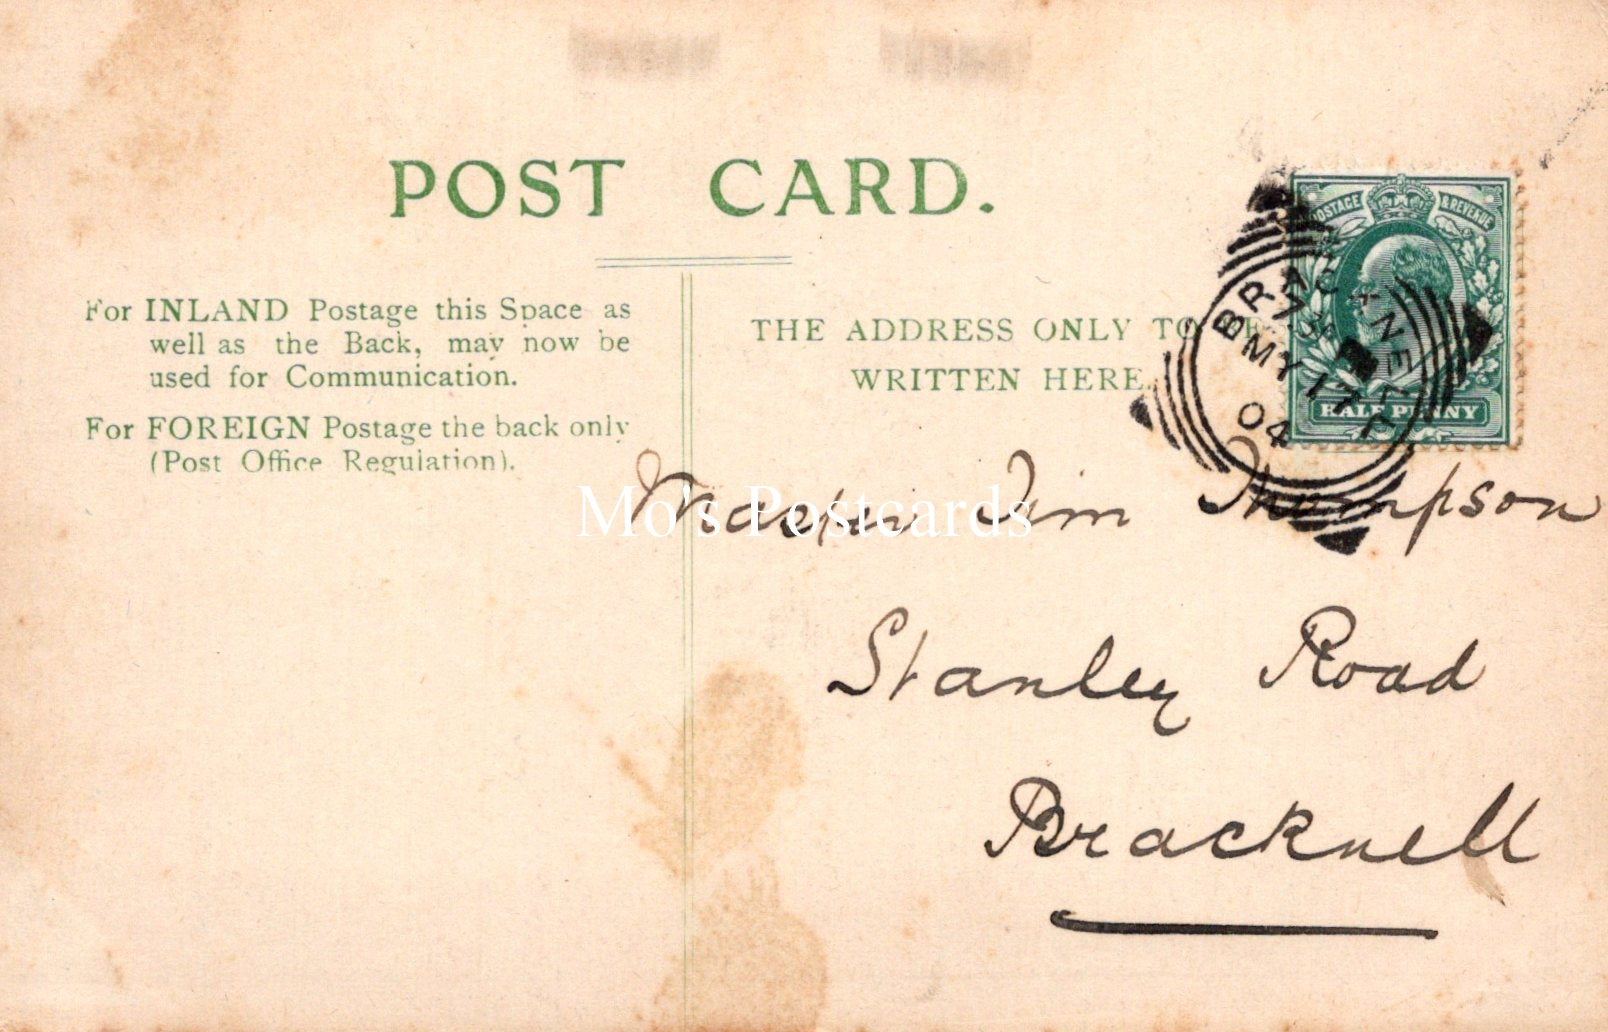 POST CARD.
For INLAND Postage this Space as
well as the Back, may now be
used for Communication.
For FOREIGN Postage the back only
(Post Office Regulation).
THE ADDRESS ONLY TO BE
WRITTEN HERE.
POSTAGE & REVENUE
HALF PENNY
BRACKNELL
MY 17
04
Master Jim Thompson
Stanley Road
Bracknell
Mo's Postcards